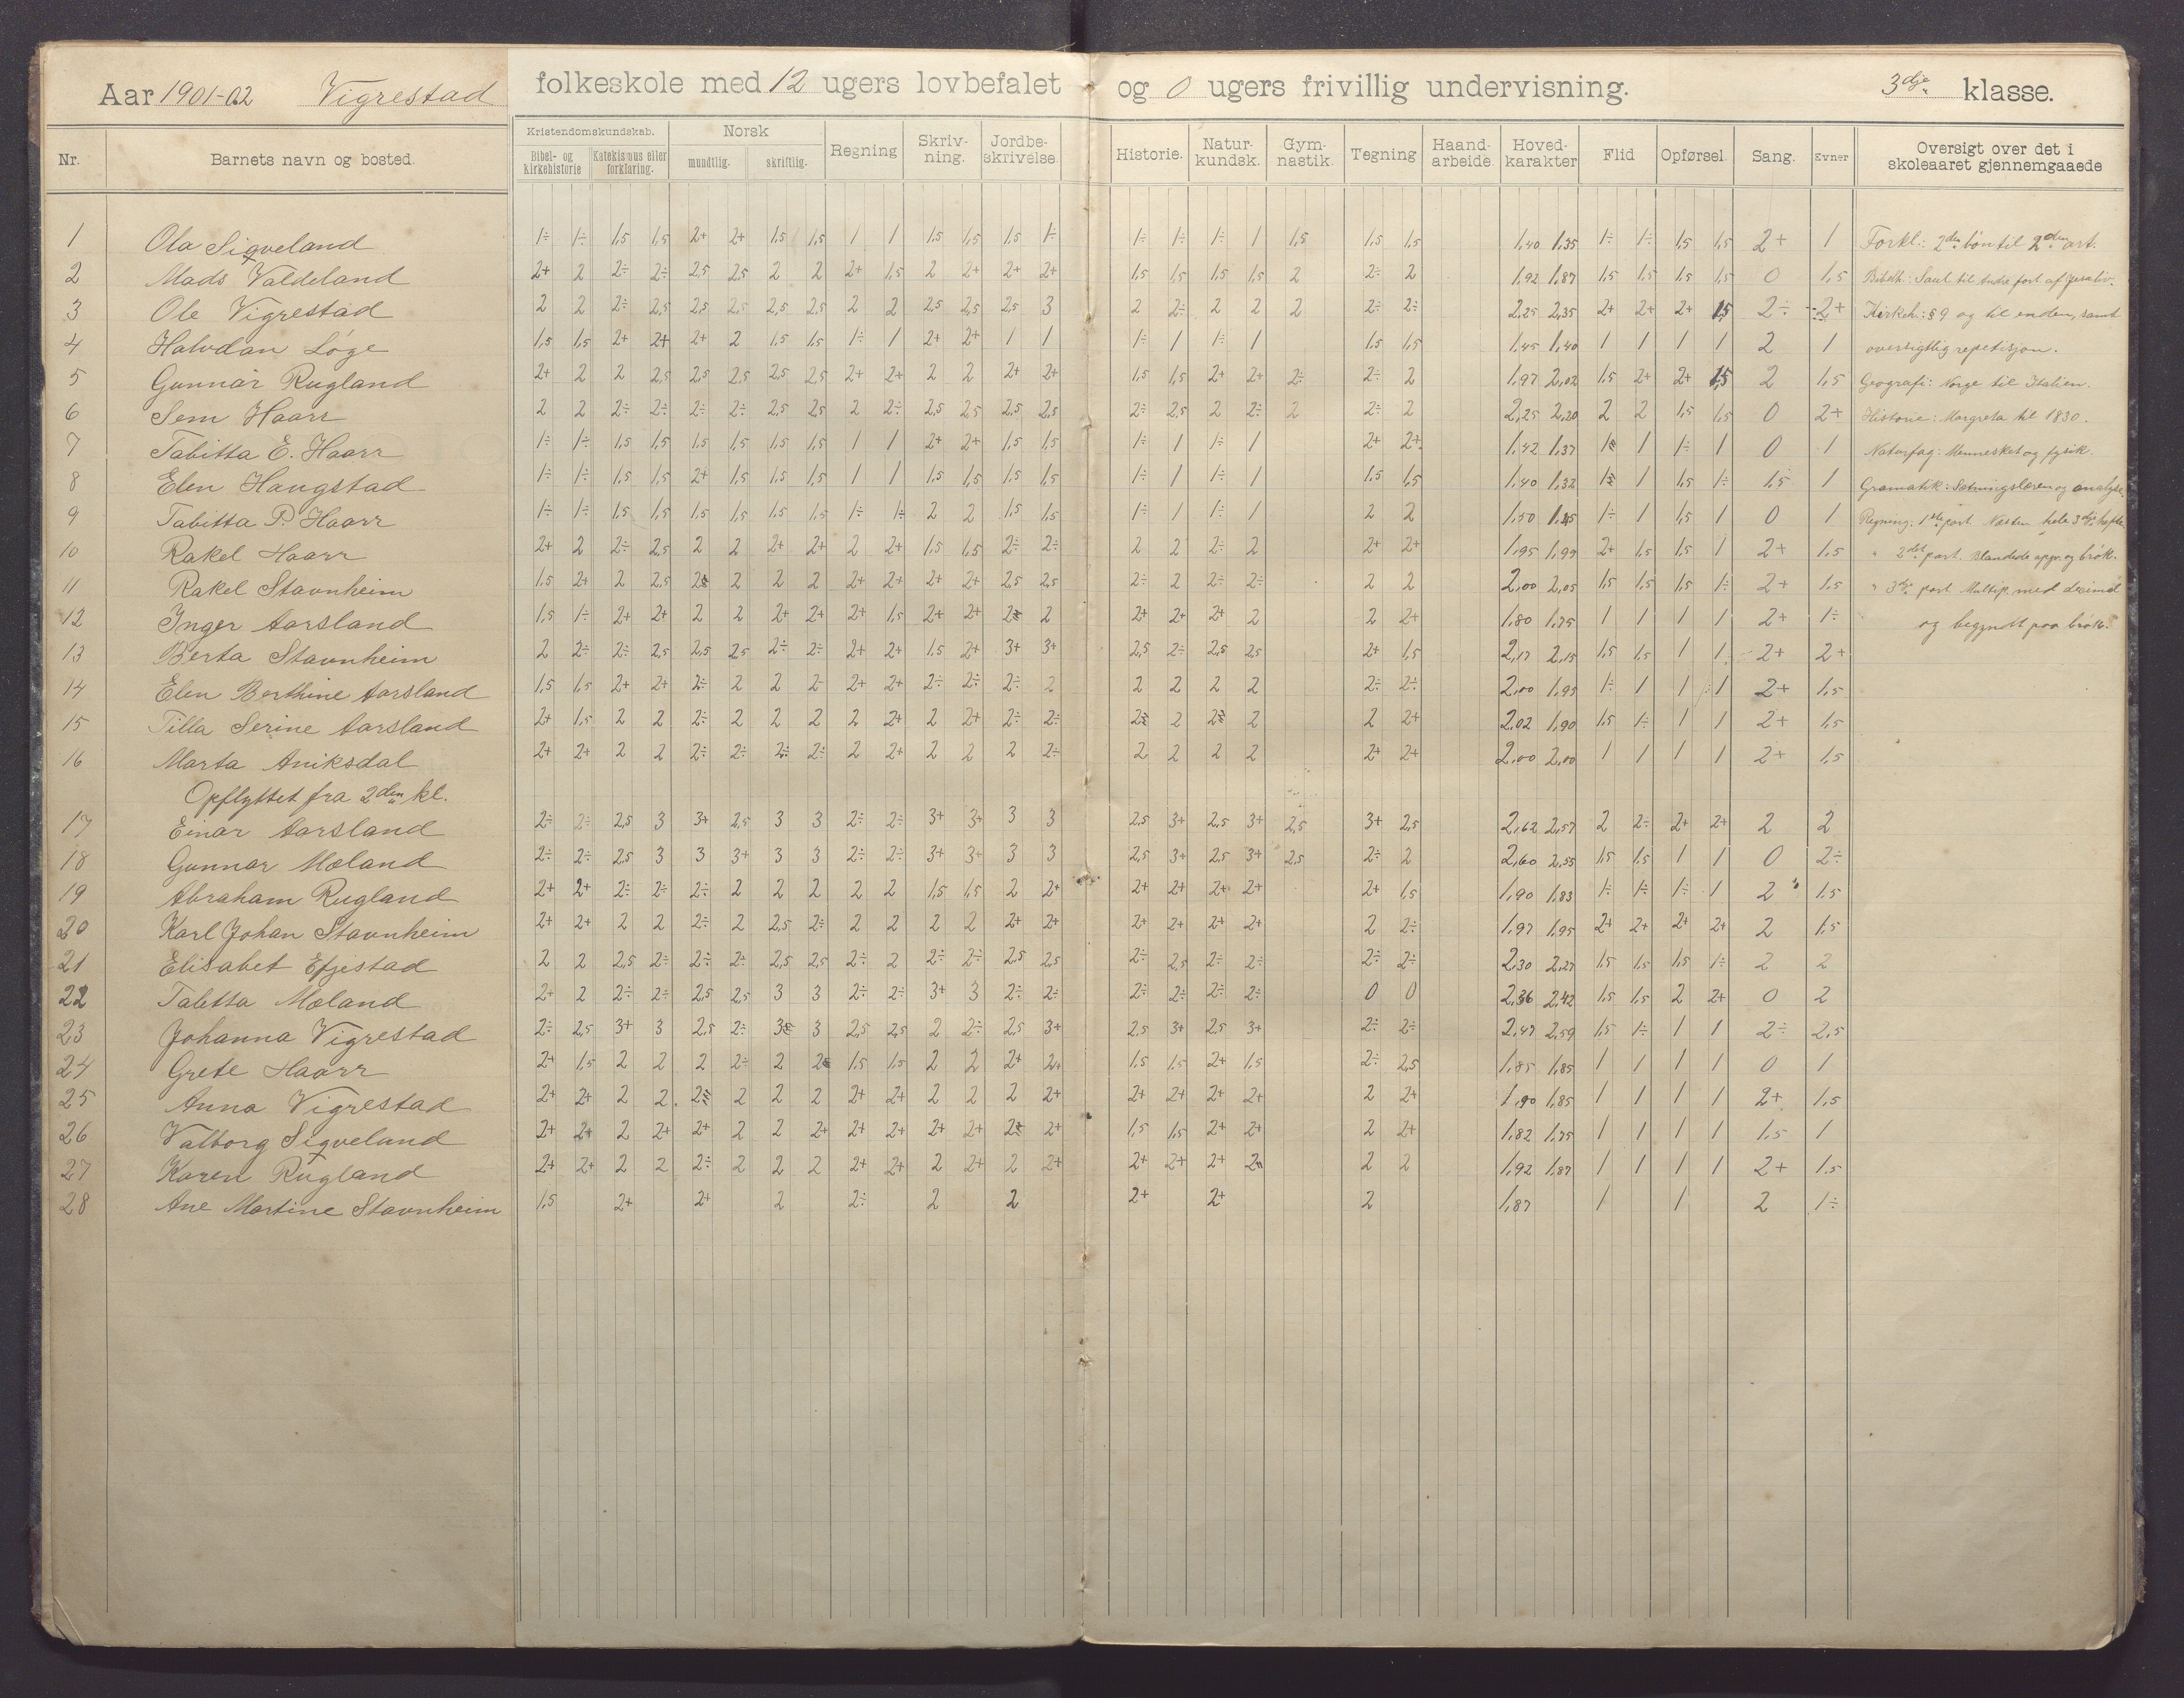 Aar 1901-02 Vigrestad folkeskole med 12 ugers lovbefalet og 0 ugers frivillig undervisning. 3dje klasse.
Nr. Barnets navn og bosted. Kristendomskundskab. Bibel- og kirkehistorie Katekismus eller forklaring. Norsk mundtlig. skriftlig. Regning Skriv-ning. Jordbe-skrivelse. Historie. Natur-kundsk. Gym-nastik. Tegning Haand-arbeide. Hoved-karakter Flid Opførsel. Sang. Evner Oversigt over det i skoleaaret gjennemgaaede
1 Ola Sigveland 1÷ 1÷ 1,5 1,5 2+ 2+ 1,5 1,5 1 1 1,5 1,5 1,5 1÷ 1÷ 1÷ 1÷ 1 1,5 1,5 1,5 1,40 1,35 1÷ 1÷ 1,5 1,5 2+ 1 Forkl.: 2den bøn til 2den art.
2 Mads Valdeland 2+ 2 2÷ 2÷ 2,5 2,5 2 2 2+ 1,5 2 2+ 2+ 2+ 1,5 1,5 1,5 1,5 2 2÷ 2 1,92 1,87 1,5 1,5 1,5 1,5 0 1,5 Bibelh: Saul til
3 Ole Vigrestad 2 2 2÷ 2,5 2,5 2,5 2,5 2,5 2 2 2,5 2,5 2,5 3 2 2÷ 2 2 2 2÷ 2÷ 2,25 2,35 2+ 2+ 2+ 1,5 2÷ 2+ Kirkeh: § 9 og til enden, samt
4 Halvdan Løge 1,5 1,5 2+ 2+ 2+ 2 1,5 1,5 1÷ 1 2+ 2+ 1 1 1÷ 1 1÷ 1 1,5 1,5 1,45 1,40 1 1 1 1 2 1 oversigtlig repetisjon.
5 Gunnar Rugland 2+ 2 2 2,5 2,5 2,5 2,5 2,5 2+ 2+ 2 2 2+ 2+ 1,5 1,5 2+ 2+ 2÷ 2÷ 2 1,97 2,02 1,5 2+ 2+ 1,5 2 1,5 Geografi: Norge til Italien.
6 Sem Haarr 2 2 2÷ 2÷ 2÷ 2÷ 2,5 2,5 2 2÷ 2,5 2,5 2,5 2,5 2÷ 2,5 2 2÷ 2 2÷ 2 2,25 2,20 2 2 1,5 1,5 0 2+ Historie: Margreta til 1830.
7 Tabitta E. Haarr 1÷ 1÷ 1,5 1,5 1,5 1,5 1,5 1,5 1 1 2+ 2+ 1,5 1,5 1÷ 1 1÷ 1 2+ 2+ 1,42 1,37 1÷ 1 1÷ 1 0 1 Naturfag: Mennesket og fysik.
8 Elen Haugstad 1÷ 1÷ 1,5 1,5 2+ 1,5 1,5 1,5 1 1 1,5 1,5 1,5 1,5 1÷ 1 1÷ 1 1,5 1,5 1,40 1,32 1÷ 1 1,5 1÷ 1,5 1 Gramatik: Sætningslæren og analyse.
9 Tabitta P. Haarr 1÷ 1÷ 1,5 1,5 1,5 1,5 1,5 1,5 1÷ 1÷ 2 2 1,5 1,5 1÷ 1 1÷ 1 2 2 1,50 1,45 1÷ 1 1,5 1 0 1 Regning: 1ste part. Næsten hele 3dje hefte.
10 Rakel Haarr 2+ 2 2÷ 2,5 2 2 2+ 2+ 2 2+ 1,5 1,5 2÷ 2÷ 2 2 2÷ 2 2+ 2+ 1,95 1,99 2+ 1,5 1,5 1 2+ 1,5 " 2det part. Blandede opgv. og brøk.
11 Rakel Stavnheim 1,5 2+ 2 2,5 2÷ 2 2 2 2+ 2+ 2+ 2+ 2,5 2,5 2÷ 2 2÷ 2÷ 2 2 2,00 2,05 1,5 1,5 1,5 1÷ 2+ 1,5 " 3dje part Multip. med decimal
12 Inger Aarsland 1,5 1÷ 2+ 2+ 2 2 2+ 2+ 2+ 1,5 2+ 2+ 2÷ 2 2+ 2+ 2+ 2 2 2+ 1,80 1,75 1 1 1 1 2+ 1÷ og begyndt paa brøk.
13 Berta Stavnheim 2 2÷ 2÷ 2,5 2,5 2,5 2÷ 2÷ 2+ 2+ 1,5 2+ 3+ 3+ 2,5 2÷ 2,5 2,5 2+ 1,5 2,17 2,15 1,5 1,5 1 1 2+ 2+
14 Elen Berthine Aarsland 1,5 1,5 2+ 2+ 2÷ 2 2 2÷ 2+ 2+ 2÷ 2÷ 2÷ 2 2 2 2 2 2÷ 2÷ 2,00 1,95 1÷ 1 1 1 2+ 1,5
15 Tilla Serine Aarsland 2+ 1,5 2 2 2÷ 2 2 2 2 2+ 2 2+ 2÷ 2÷ 2÷ 2 2÷ 2 2 2+ 2,02 1,90 1,5 1÷ 1 1 2+ 1,5
16 Marta Aniksdal 2+ 2+ 2 2 2÷ 2÷ 2÷ 2÷ 2 2+ 2 2 2 2÷ 2 2 2 2 2+ 2+ 2,00 2,00 1 1 1 1 2+ 1,5
Opflyttet fra 2den kl.
17 Einar Aarsland 2÷ 2÷ 2,5 3 3+ 2,5 3 3 2÷ 2÷ 3+ 3+ 3 3 2,5 3+ 2,5 3+ 2,5 3+ 2,5 2,62 2,57 2 2÷ 2+ 2+ 2 2
18 Gunnar Mæland 2÷ 2÷ 2,5 3 3 3+ 3 3 2÷ 2÷ 3+ 3+ 3 3 2,5 3+ 2,5 3+ 2,5 2÷ 2 2,60 2,55 1,5 1,5 1 1 0 2÷
19 Abraham Rugland 2+ 2+ 2÷ 2÷ 2÷ 2 2 2 2 2 1,5 1,5 2 2+ 2+ 2+ 2+ 2+ 2+ 1,5 1,90 1,83 1÷ 1÷ 1÷ 1 2 1,5
20 Karl Johan Stavnheim 2+ 2+ 2 2 2÷ 2 2,5 2÷ 2 2 2 2 2+ 2+ 2+ 2+ 2+ 2+ 2 2÷ 1,97 1,95 2+ 2+ 2+ 2+ 2 1,5
21 Elisabet Efjestad 2 2 2,5 2÷ 2÷ 2÷ 2,5 2,5 2÷ 2 2÷ 2÷ 2,5 2,5 2÷ 2,5 2÷ 2÷ 2÷ 2÷ 2,30 2,27 1,5 1,5 1,5 1÷ 2 2
22 Tabitta Mæland 2+ 2 2÷ 2÷ 2,5 2,5 3 3 2÷ 2÷ 3+ 3 2÷ 2÷ 2÷ 2÷ 2÷ 2÷ 0 0 2,36 2,42 1,5 1,5 2 2+ 0 2
23 Johanna Vigrestad 2÷ 2,5 3+ 3 2,5 2÷ 3÷ 3 2,5 2,5 2 2÷ 2,5 3+ 2,5 3+ 2,5 3+ 2÷ 2÷ 2,47 2,59 1,5 1÷ 1 1 2÷ 2,5
24 Grete Haarr 2+ 1,5 2 2 2 2÷ 2 2 1,5 1,5 2 2 2+ 2+ 1,5 1,5 2+ 1,5 2÷ 2,5 1,85 1,85 1 1 1 1 0 1
25 Anna Vigrestad 2+ 2+ 2 2 2÷ 2 2 2 2+ 2+ 2 2 2 2+ 2+ 2+ 2+ 2+ 2 2+ 1,90 1,85 1 1 1 1 2+ 1,5
26 Valborg Sigveland 2+ 2+ 2 2+ 2+ 2 2 2+ 2+ 2+ 2+ 2+ 2÷ 2+ 1,5 1,5 2+ 2+ 2 2+ 1,82 1,75 1 1 1 1 1,5 1
27 Karen Rugland 2+ 2+ 2 2 2÷ 2 2 2 2+ 2+ 2 2+ 2 2+ 2+ 2+ 2+ 2 2 2 1,92 1,87 1 1 1 1 2+ 1,5
28 Ane Martine Stavnheim 1,5 2+ 2+ 2 2÷ 2 2 2+ 2+ 2 1,87 1 1 2 1÷